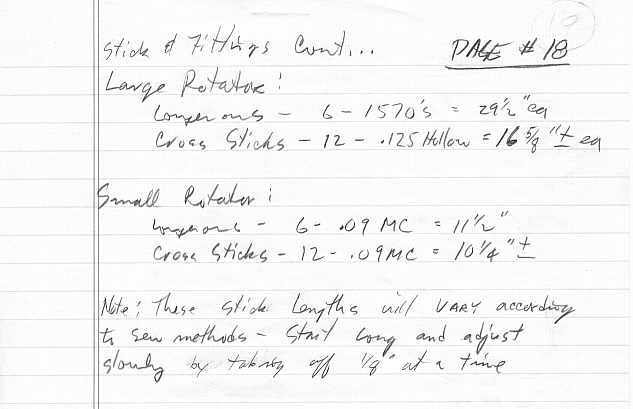 Stick & Fittings Cont...
PAGE #18
Large Rotator:
Longerons - 6 - 1570's = 29 1/2" ea
Cross Sticks - 12 - .125 Hollow = 16 5/8" ± ea
Small Rotator:
Longerons - 6 - .09 MC = 11 1/2"
Cross Sticks - 12 - .09 MC = 10 1/4" ±
Note: These stick lengths will VARY according
to sew methods - Start long and adjust
slowly by taking off 1/8" at a time